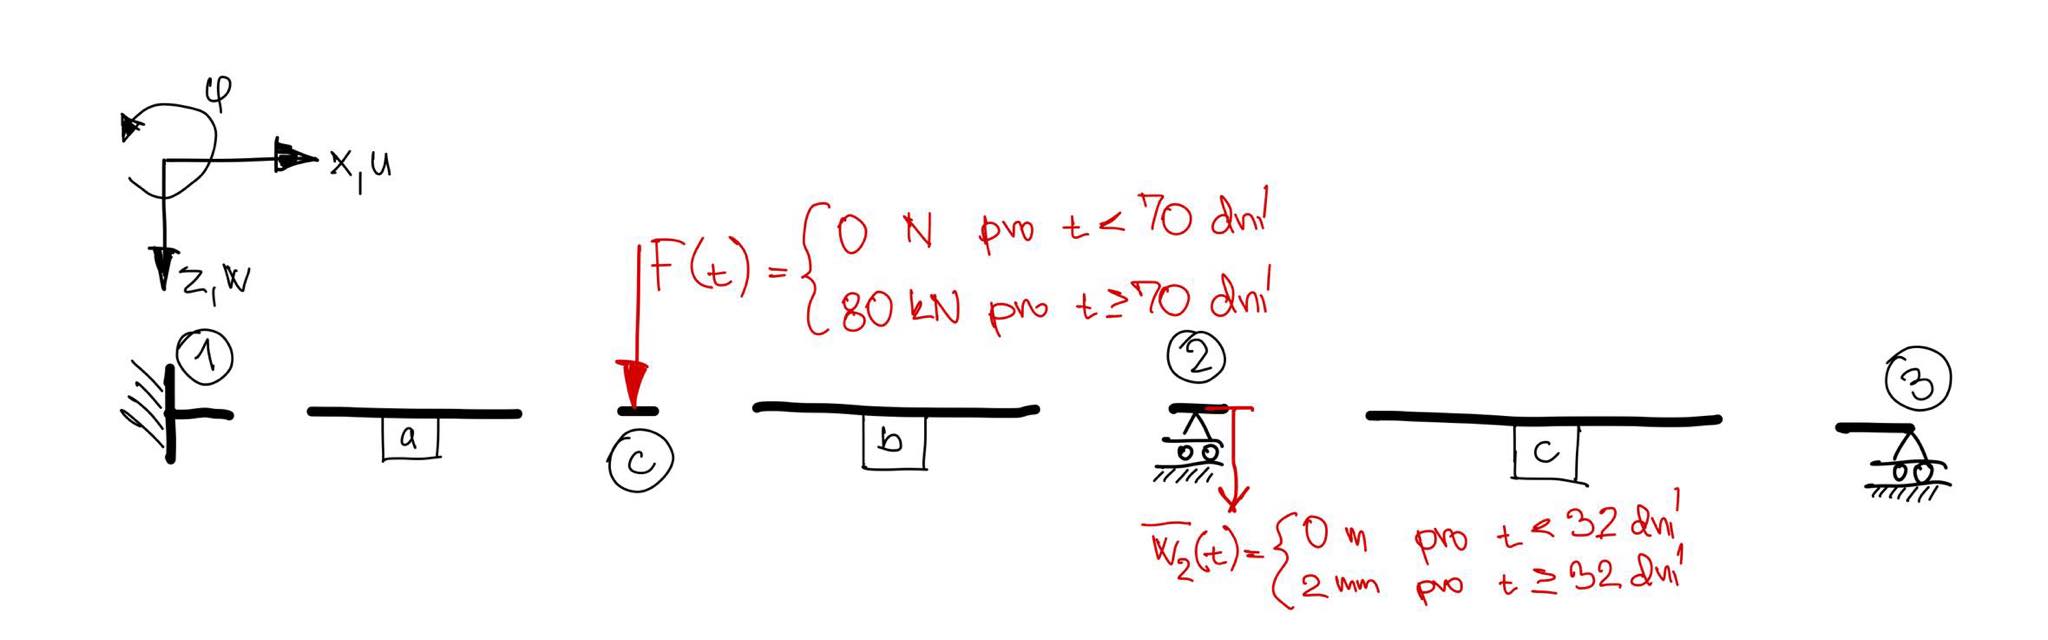 φ
x,u
z,w
F(t) = { 0 N pro t < 70 dní
80 kN pro t ≥ 70 dní
1
2
3
a
b
c
c
w̅₂(t) = { 0 m pro t < 32 dní
2 mm pro t ≥ 32 dní